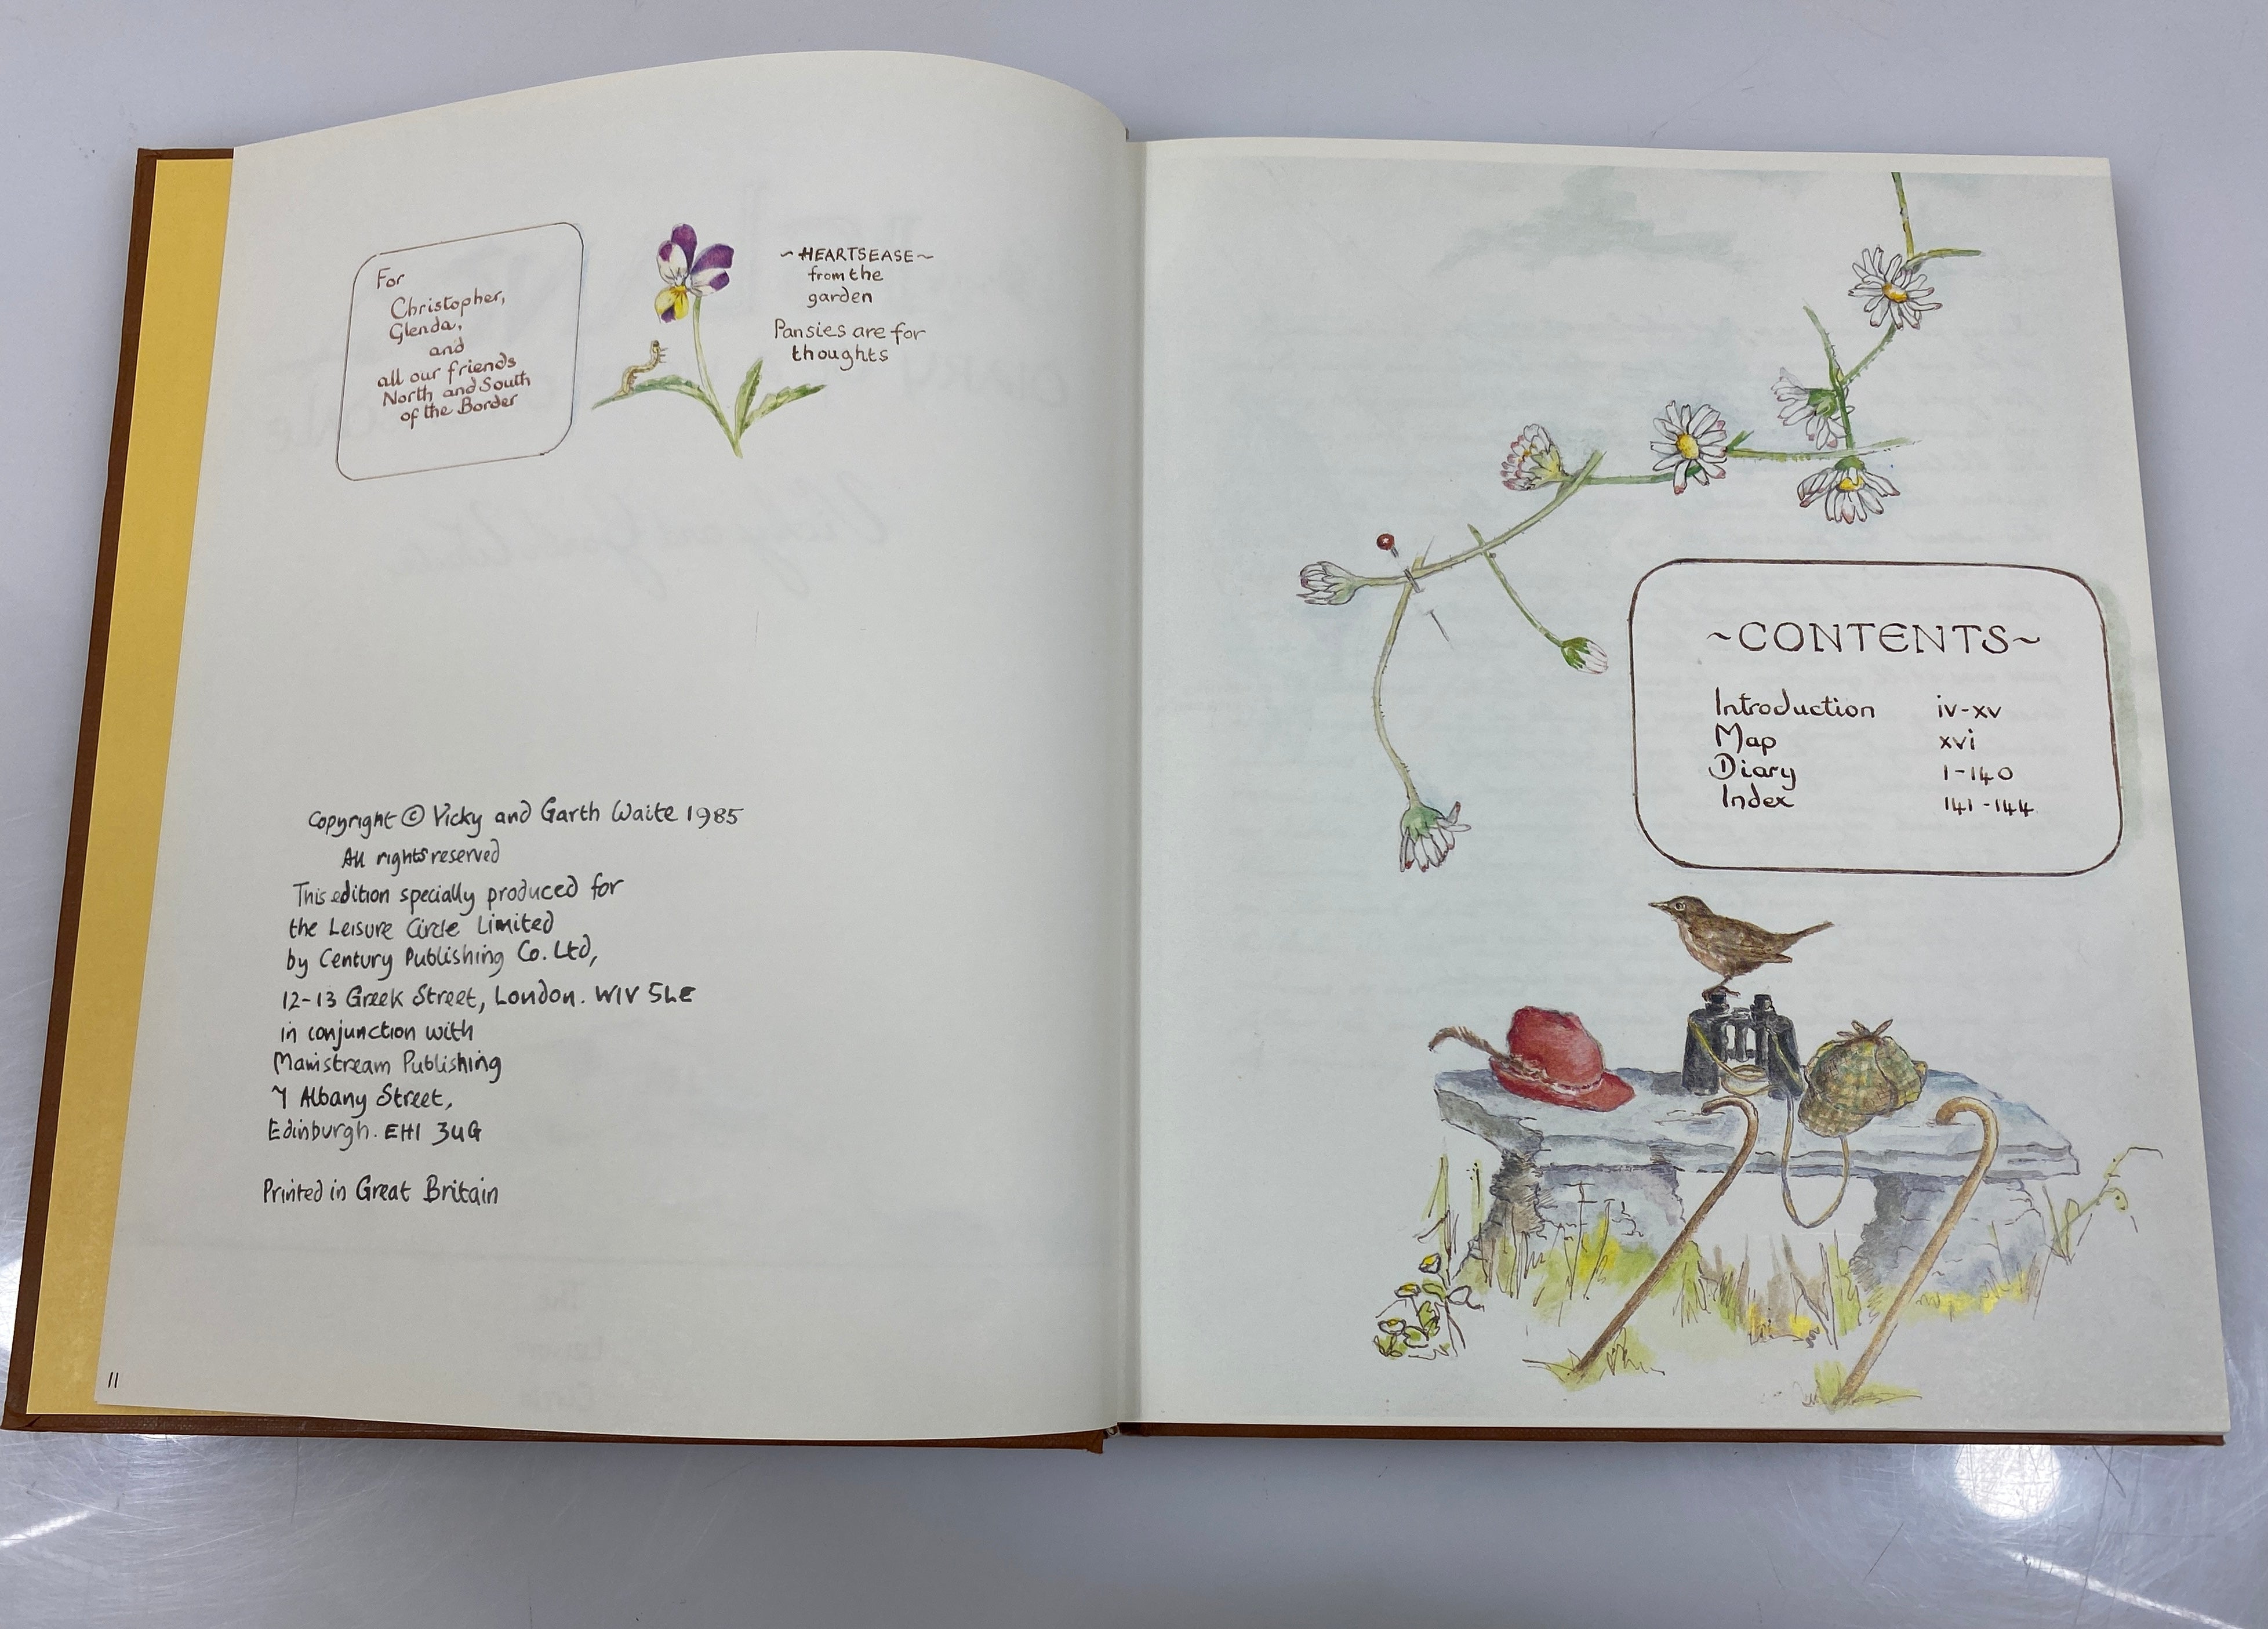 For
Christopher,
Glenda,
and
all our friends
North and South
of the Border
~HEARTSEASE~
from the
garden
Pansies are for
thoughts
Copyright © Vicky and Garth Waite 1985
All rights reserved
This edition specially produced for
the Leisure Circle Limited
by Century Publishing Co. Ltd,
12-13 Greek Street, London. W1V 5LE
in conjunction with
Mainstream Publishing
7 Albany Street,
Edinburgh. EH1 3UG
Printed in Great Britain
11
~CONTENTS~
Introduction iv-xv
Map xvi
Diary 1-140
Index 141-144